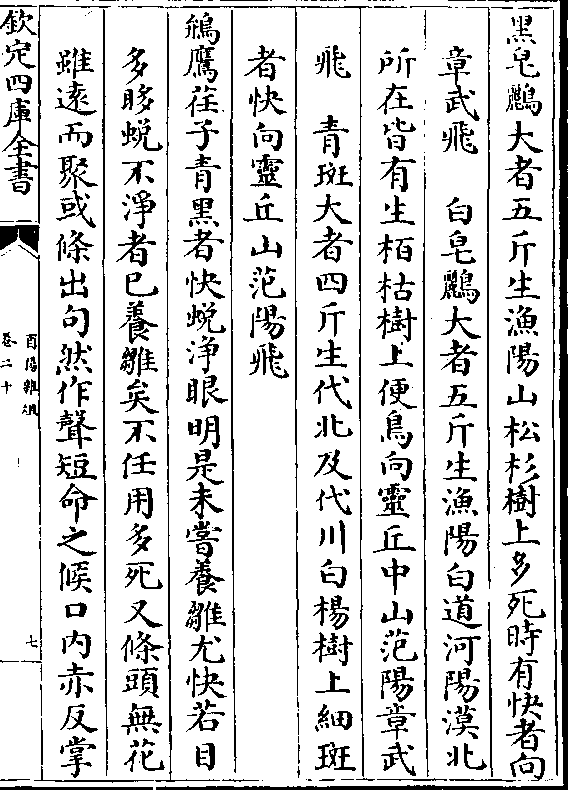 黑皂鸝大者五斤生漁陽山松杉樹上多死時有快者向
章武飛　白皂鸝大者五斤生漁陽白道河陽漠北
所在皆有生栢枯樹上便鳥向靈丘中山范陽章武
飛　青斑大者四斤生代北及代川白楊樹上細斑
者快向靈丘山范陽飛
鴘鷹荏子青黑者快蜕浄眼明是未嘗養雛尤快若目
多眵蜕不淨者已養雛矣不任用多死又條頭無花
雖遠而聚或條出句然作聲短命之候口内赤反掌
欽定四庫全書
酉陽雜俎
卷二十
七